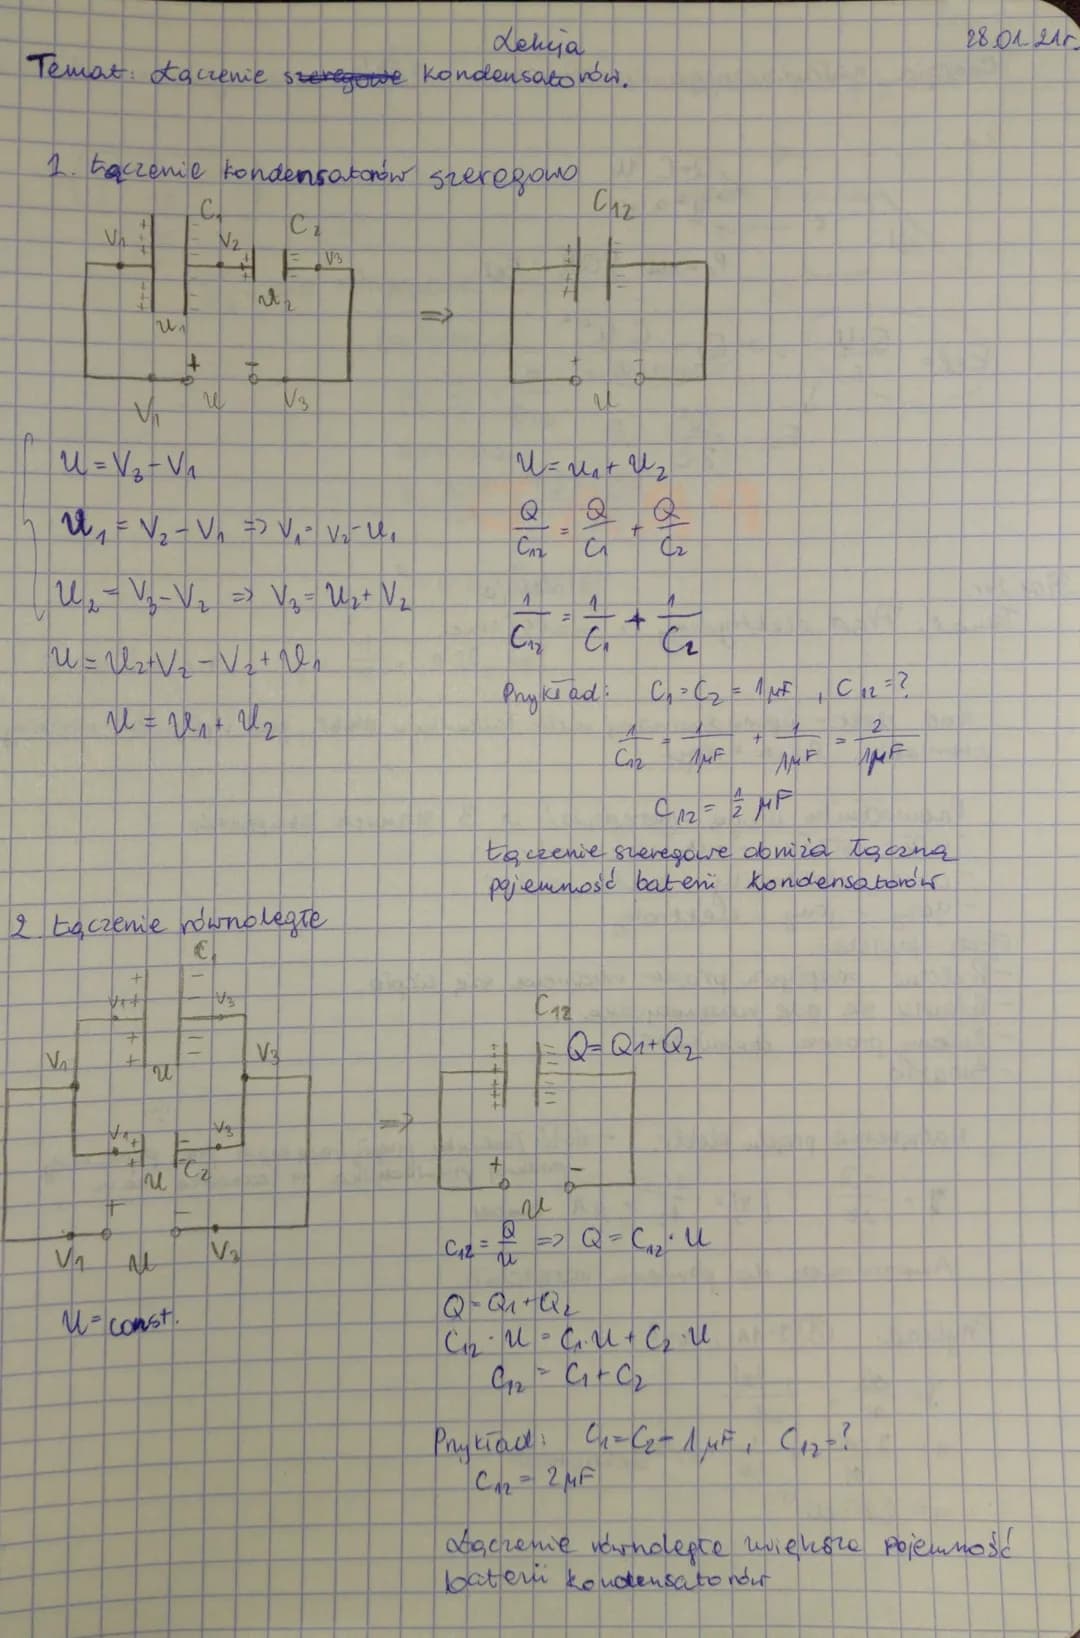 Lekcja
28.01.21r.
Temat: Łączenie szeregowe kondensatorów.
1. Łączenie kondensatorów szeregowo
C₁
V₁
V₂
C₂
V₃
U₁
U₂
V₁
U
V₃
⇒
C₁₂
U
U = V₃ - V₁
U₁ = V₂ - V₁ ⇒ V₁ = V₂ - U₁
U₂ = V₃ - V₂ ⇒ V₃ = U₂ + V₂
U = U₂ + V₂ - V₂ + U₁
U = U₁ + U₂
U = U₁ + U₂
Q/C₁₂ = Q/C₁ + Q/C₂
1/C₁₂ = 1/C₁ + 1/C₂
Przykład: C₁ = C₂ = 1μF , C₁₂ = ?
1/C₁₂ = 1/1μF + 1/1μF = 2/1μF
C₁₂ = ½ μF
Łączenie szeregowe obniża łączną
pojemność baterii kondensatorów
2. Łączenie równoległe
C₁
V₁
V₃
V₁
U
V₃
V₁
V₃
U
C₂
V₁
U
V₃
U = const.
⇒
C₁₂
Q = Q₁ + Q₂
U
C₁₂ = Q/U ⇒ Q = C₁₂ · U
Q = Q₁ + Q₂
C₁₂ · U = C₁ · U + C₂ · U
C₁₂ = C₁ + C₂
Przykład: C₁ = C₂ = 1μF, C₁₂ = ?
C₁₂ = 2μF
Łączenie równoległe zwiększa pojemność
baterii kondensatorów